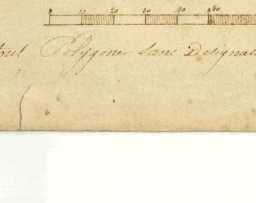 0 10 20 30 40 50
Polygone sans Designat